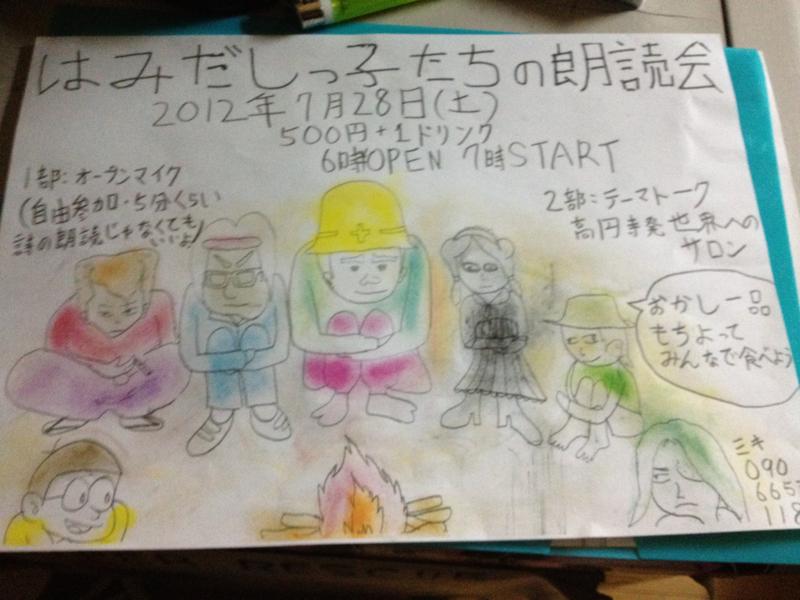 はみだしっ子たちの朗読会
2012年7月28日(土)
500円+1ドリンク
6時OPEN 7時START
1部:オープンマイク
(自由参加・5分くらい
詩の朗読じゃなくても
いいよ)
2部:テーマトーク
高円寺発世界への
サロン
おかし一品
もちよって
みんなで食べよう
ミキ
090
665
118